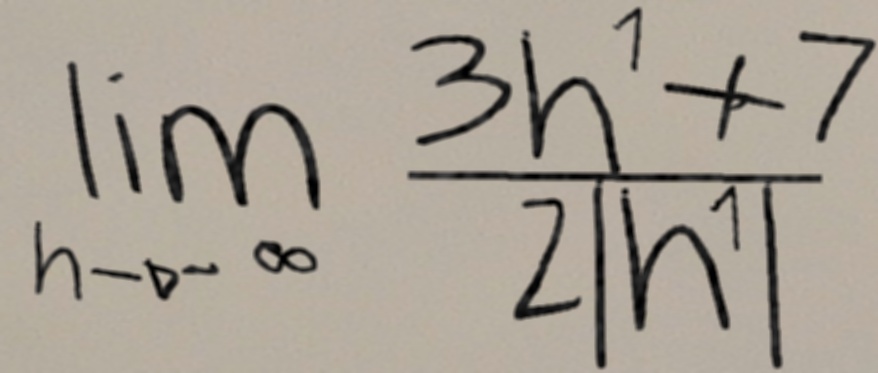 lim 3h¹+7
h→-∞ 2|h¹|